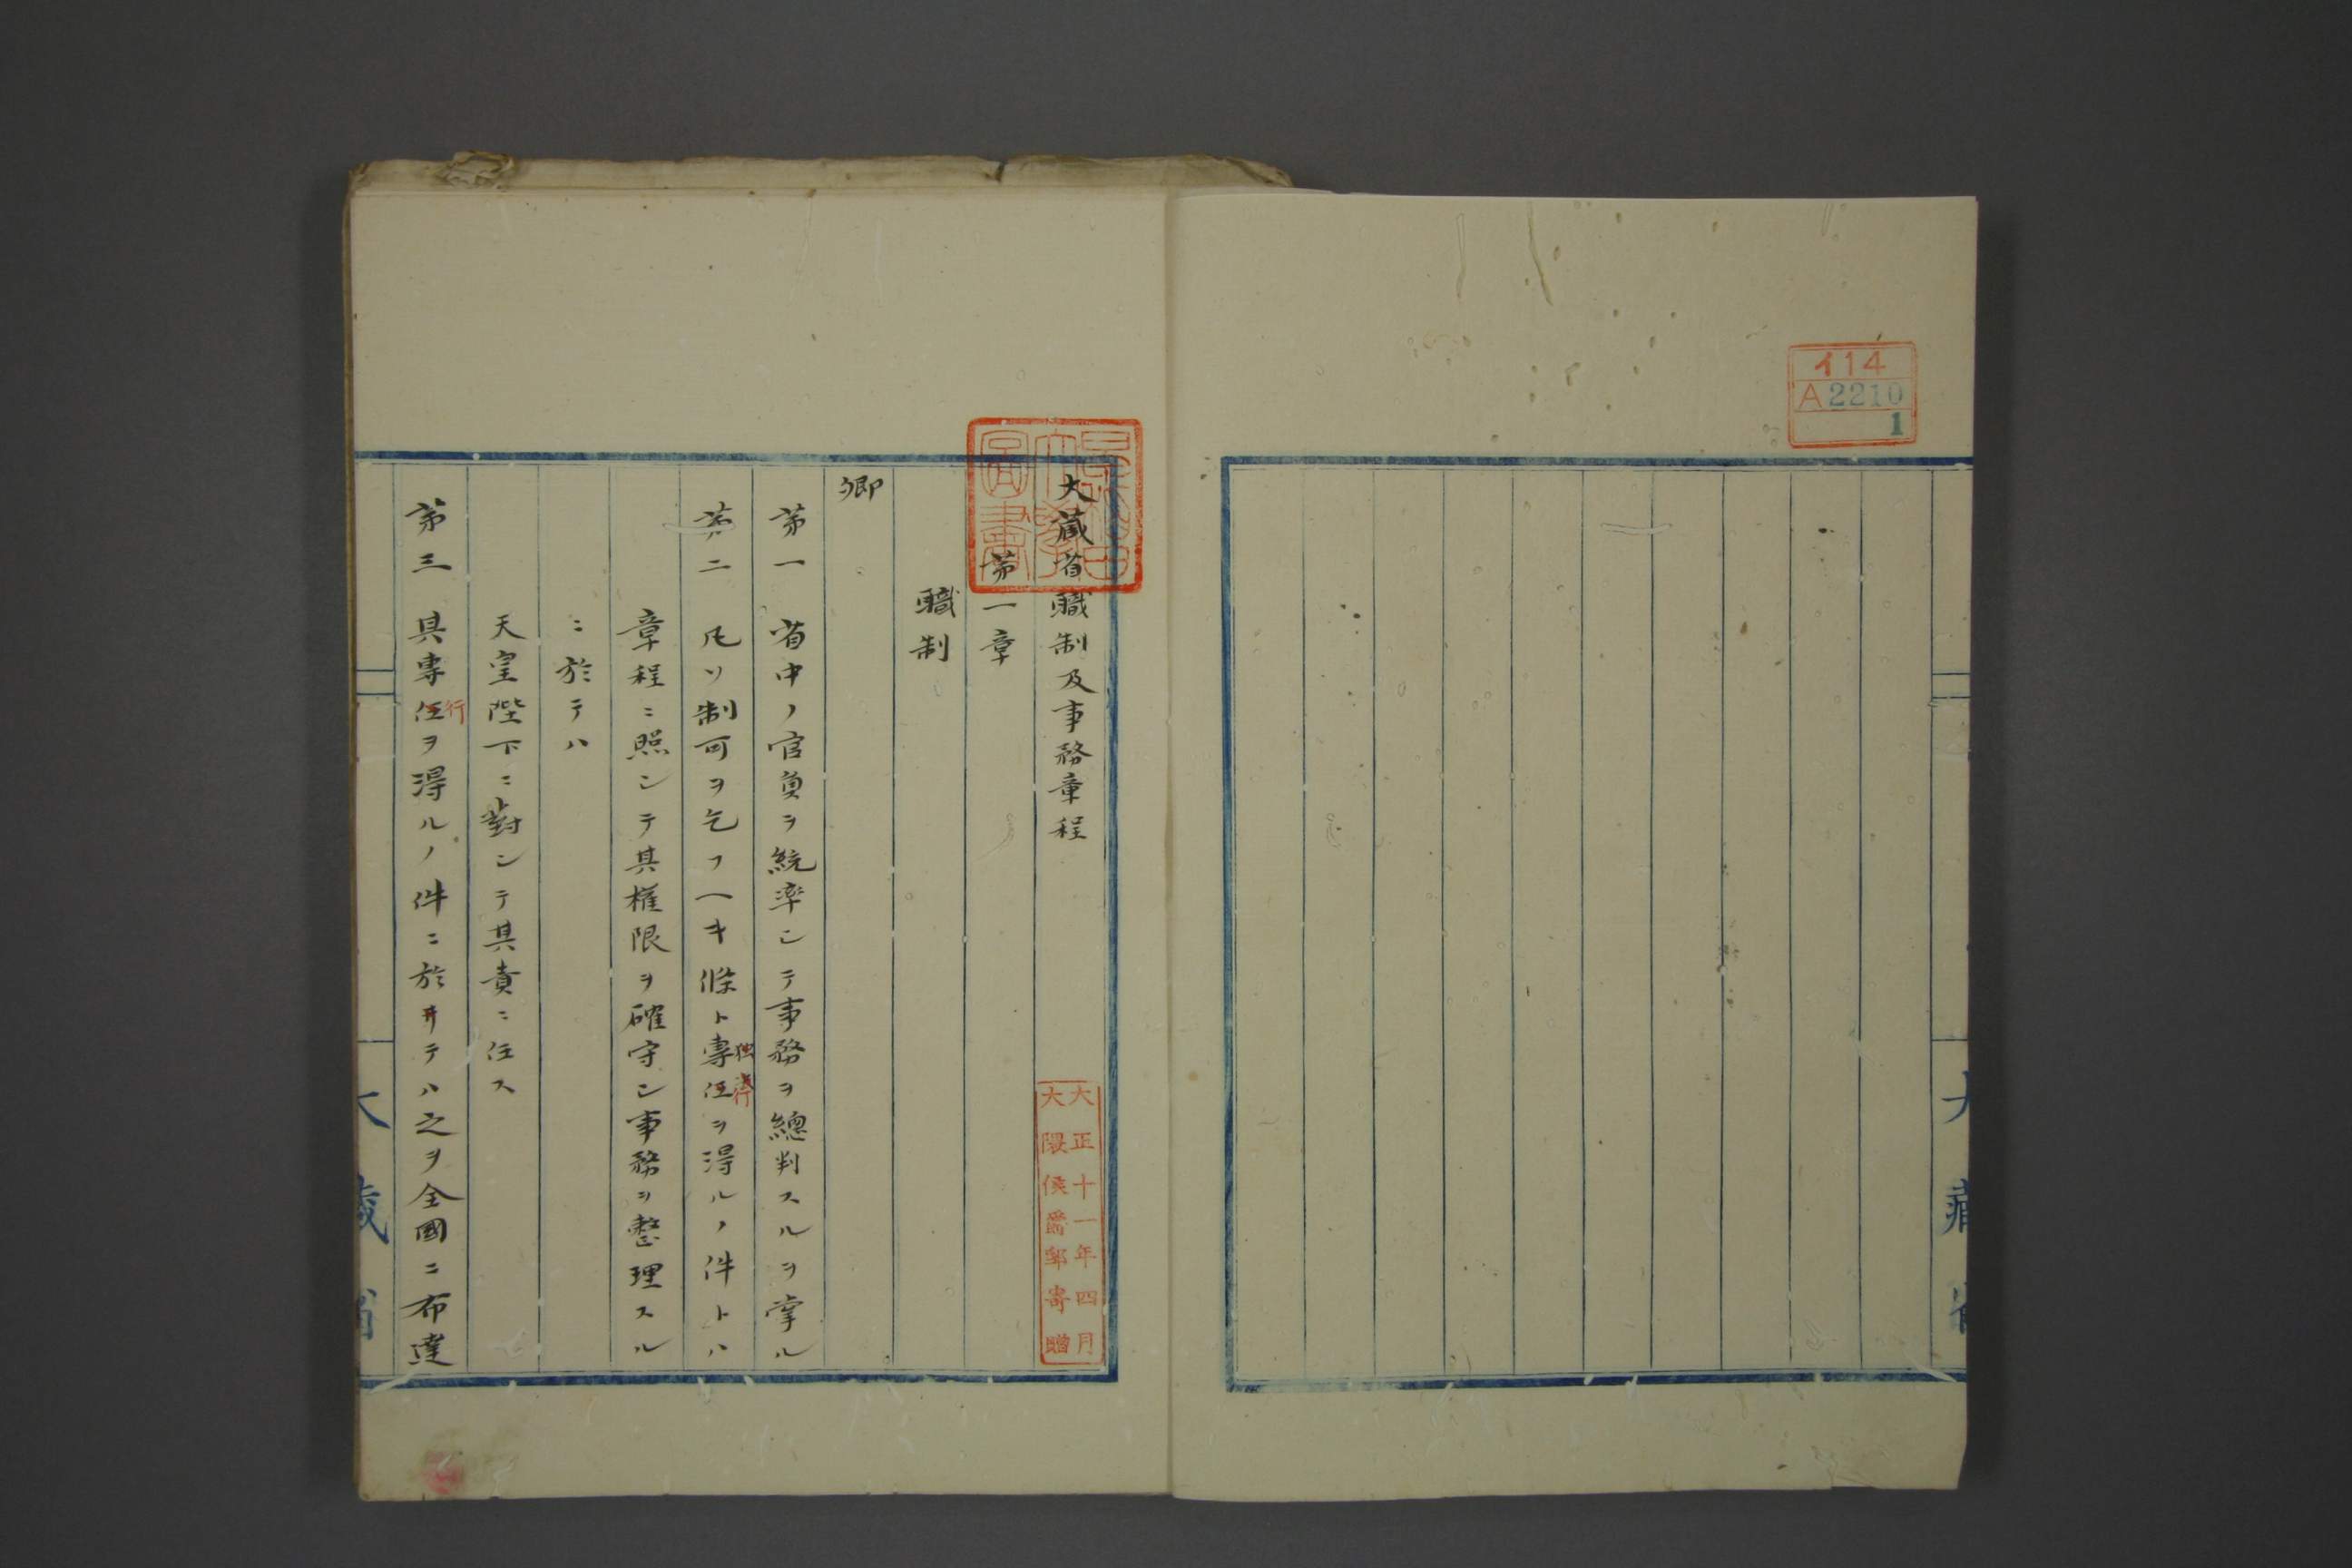 イ14
A2210
1
大藏省
大藏省職制及事務章程
第一章
職制
卿
第一 省中ノ官員ヲ統率シテ事務ヲ總判スルヲ掌ル
第二 凡ソ制可ヲ乞フヘキ條ト專任ヲ得ルノ件トハ
章程ニ照シテ其権限ヲ確守シ事務ヲ整理スル
ニ於テハ
天皇陛下ニ對シテ其責ニ任ス
第三 具專任ヲ得ルノ件ニ於ヰテハ之ヲ全國ニ布達
行
行
大正十一年四月
大隈侯爵邸寄贈
大藏省